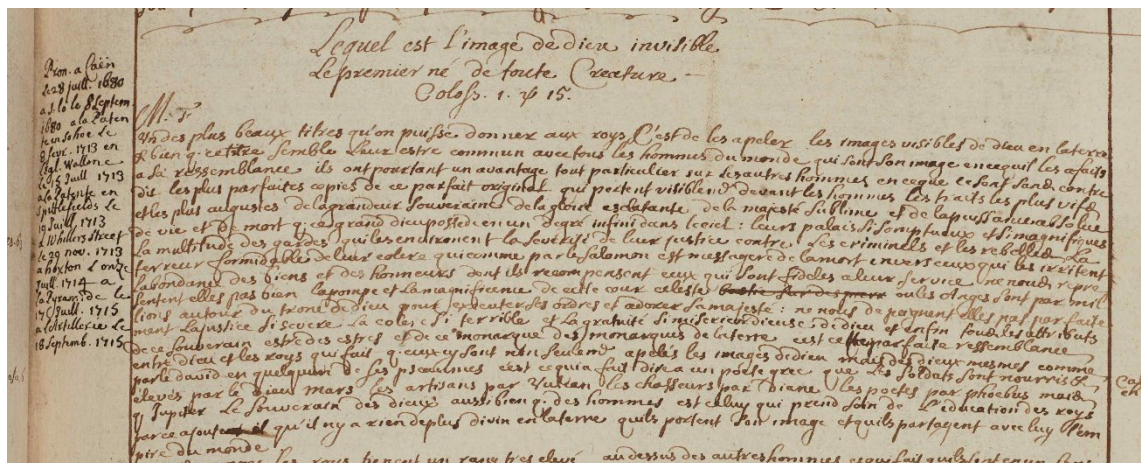 Lequel est l'image de dieu invisible
Le premier né de toute Creature -
Coloss. 1. ψ 15.
Pron. a Caën
le 28 juill. 1680
a S. lo le 8 Septem
1680 a la Paten
te en Sohoe le
8 fevr. 1713 en
l'Egl. Wallone
le 15 Juill 1713
a la Patente en
Spittlefields le
19 Juill 1713
a Whillers Street
le 29 nov. 1713
a hoxton l'onze
Juill. 1714 a
la Pyramide le
17 Juill. 1715
a l'Artillerie le
18 Septemb. 1715
M. F.
Un des plus beaux titres qu'on puisse donner aux roys C'est de les apeler les images visibles de dieu en la terre
& bien q. ce titre semble leur estre commun avec tous les hommes du monde qui sont son image en ce quil les a faits
a sa ressemblance ils ont pourtant un avantage tout particulier sur les autres hommes en ce que ce sont sans contre
dit les plus parfaites copies de ce parfait original qui portent visiblemt devant les hommes les traits les plus vifs
et les plus augustes de la grandeur souveraine de la gloire esclatante de la majesté sublime et de la puissance absolue
de vie et de mort q. ce grand dieu possede en un degré infini dans le ciel : leurs palais si somptueux et si magnifiques
La multitude des gardes qui les environnent la severité de leur justice contre les criminels et les rebelles La
terreur formidable de leur colere qui comme parle Salomon est messagere de la mort envers ceux qui les irritent
l'abondance des biens et des honneurs dont ils recompensent ceux qui sont fideles a leur service ne nous repre
sentent elles pas bien la pompe et la magnificence de cette cour celeste ou les Anges sont par mil
lions autour du trone de dieu pour executer ses ordres et adorer sa majesté : ne nous depeignent elles pas parfaite
ment la justice si severe la colere si terrible et la gratuité si misericordieuse de dieu et enfin tous les attributs
de ce souverain estre des estres et de ce monarque des monarques de la terre c'est cette parfaite ressemblance
entre dieu et les roys qui fait q. ceux cy sont non seulemt apelés les images de dieu mais des dieux mesmes comme
parle david en quelqu'un de ses pseaumes c'est ce qui a fait dire a un poete grec que les soldats sont nourris &
elevés par le dieu mars les artisans par Vulcan les chasseurs par Diane les poetes par phoebus mais
q. Jupiter le souverain des dieux aussi bien q. des hommes est celuy qui prend soin de l'education des roys
parce qu'il n'y a rien de plus divin en la terre qu'ils portent son image et quils partagent avec luy l'em
pire du monde
les roys tienent un rang tres elevé au dessus des autres hommes